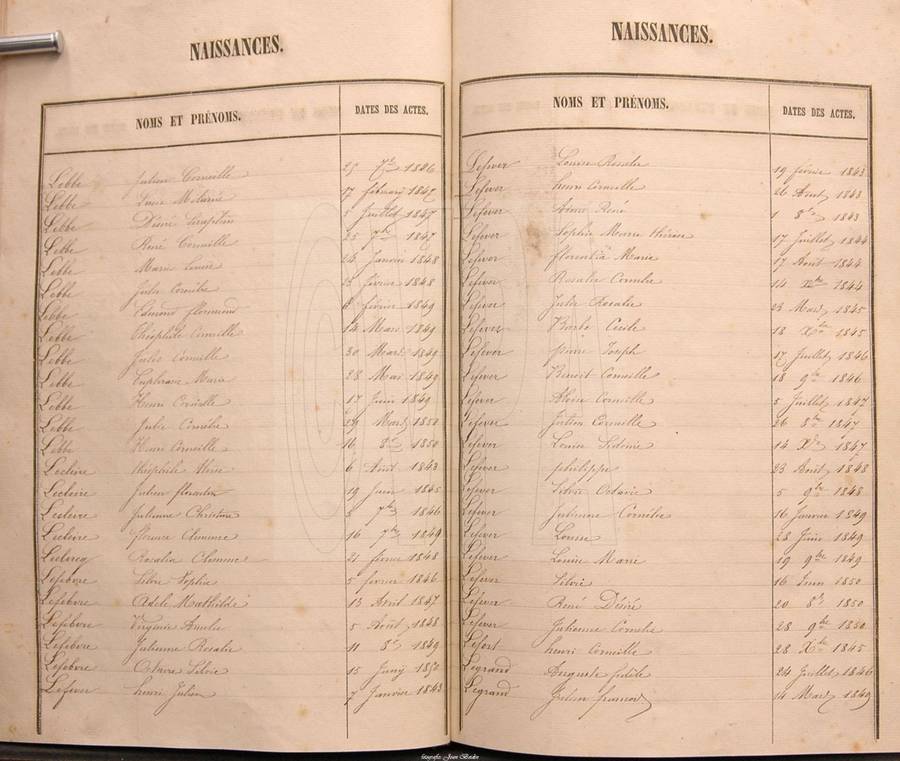 NAISSANCES.
NOMS ET PRÉNOMS. DATES DES ACTES.
Lebbe Julien Corneille 25 7bre 1846
Lebbe Lucie Mélanie 17 février 1847
Lebbe Désiré Séraphin 5 Juillet 1847
Lebbe René Corneille 25 7bre 1847
Lebbe Marie Louise 24 Janvier 1848
Lebbe Julie Cornélie février 1848
Lebbe Edmond florimond février 1849
Lebbe Théophile Corneille 14 Mars 1849
Lebbe Jules Corneille 30 Mars 1849
Lebbe Euphrasie Marie 28 Mai 1849
Lebbe Henri Corneille 17 Juin 1849
Lebbe Julie Cornélie 29 Mars 1850
Lebbe Henri Corneille 16 1850
Leclerre Théophile 6 Août 1843
Leclerre Julien florentin 19 Juin 1845
Leclerre Julienne Christine 7bre 1846
Leclerre florence Clémence 16 7bre 1849
Leclercq Rosalie Clémence 21 février 1848
Lefebvre Silvie Sophie 5 février 1846
Lefebvre Adèle Mathilde 13 Avril 1847
Lefebvre Virginie Amélie 5 Août 1848
Lefebvre Julienne Rosalie 11 1849
Lefebvre Octavie Silvie 15 Juny 1850
Lefever henri Julien 7 Janvier 1843
NAISSANCES.
NOMS ET PRÉNOMS. DATES DES ACTES.
Lefever Louise Rosalie 19 février 1843
Lefever henri Corneille 26 Août 1843
Lefever Aimé René 1 8bre 1843
Lefever Sophie Marie thérèse 17 Juillet 1844
Lefever florentia Marie 17 Août 1844
Lefever Rosalie Cornélie 14 Xbre 1844
Lefever Julie Rosalie 23 Mars 1845
Lefever Barbe Cécile 18 Xbre 1845
Lefever pierre Joseph 17 Juillet 1846
Lefever Benoit Corneille 18 9bre 1846
Lefever Aloïse Corneille 5 Juillet 1847
Lefever Julien Corneille 26 8bre 1847
Lefever Louise Sidonie 14 Xbre 1847
Lefever philippe 23 Août 1848
Lefever Silvie Octavie 5 9bre 1848
Lefever Julienne Cornélie 16 Janvier 1849
Lefever Louise 28 Juin 1849
Lefever Louise Marie 19 9bre 1849
Lefever Silvie 16 Juin 1850
Lefever René Désiré 20 8bre 1850
Lefever Julienne Cornélie 28 9bre 1850
Lefort henri Corneille 28 Xbre 1845
Legrand Auguste fidèle 24 Juillet 1846
Legrand Julien françois 14 Mars 1849
fotografie: Joan Boidin